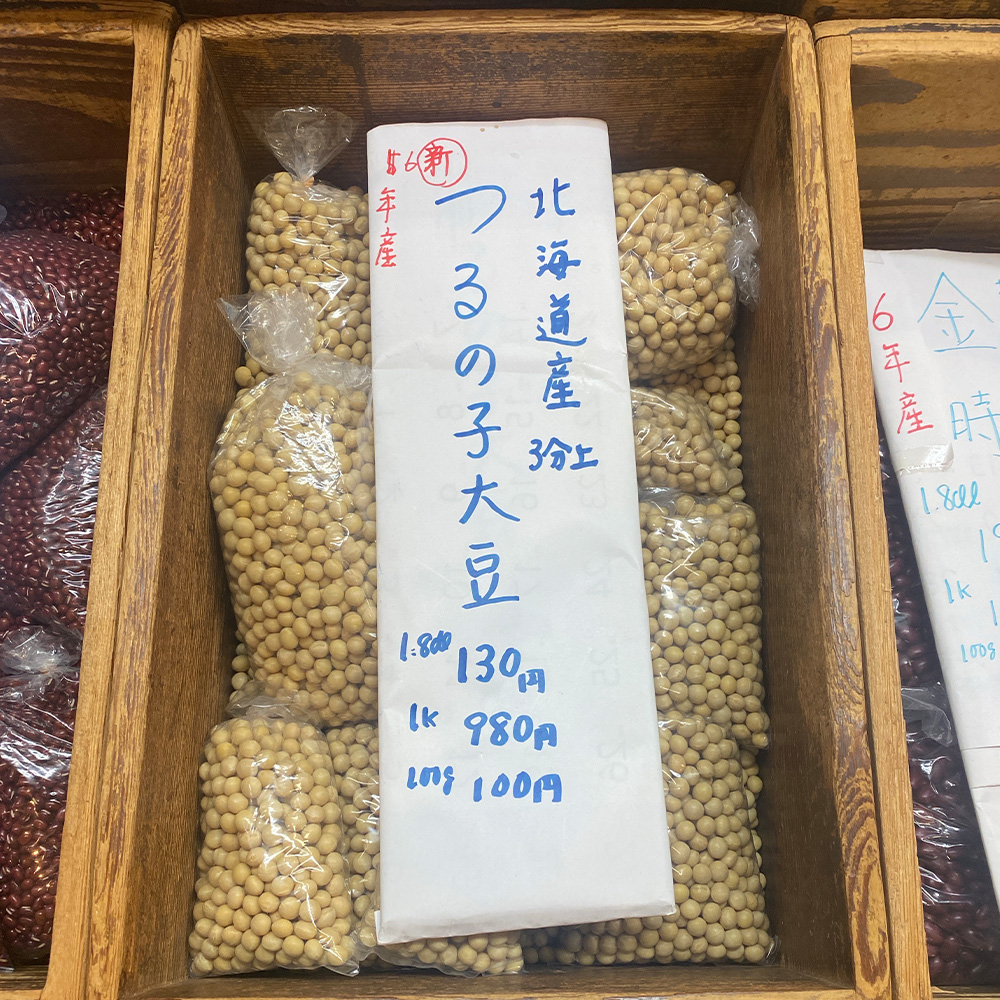 北海道産 3分上
つるの子大豆
新
6年産
1.8dl 130円
1K 980円
100g 100円
6年産
金時
1.8dl
1K
100g